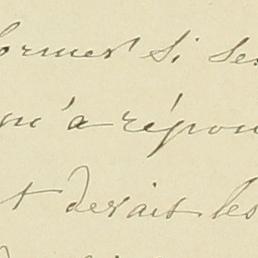 formes si ses
qu'a répon
t devait les